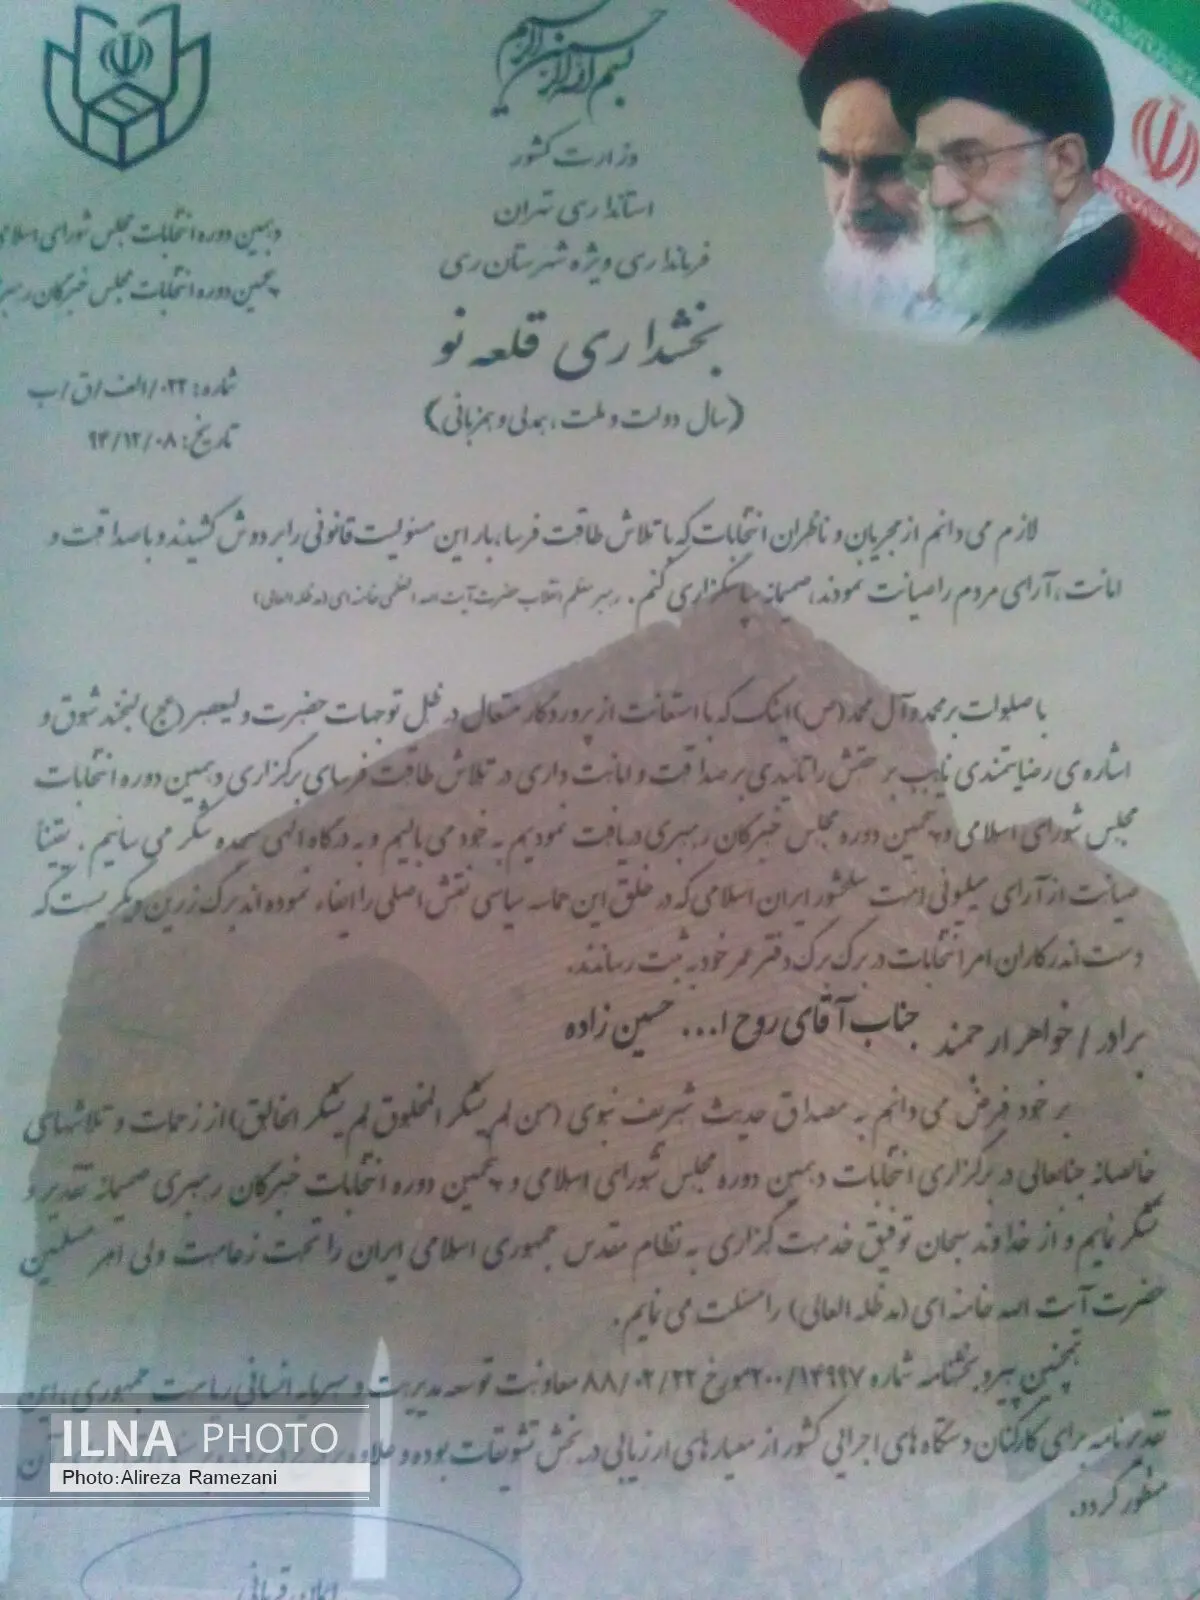 بسم الله الرحمن الرحیم
وزارت کشور
استانداری تهران
فرمانداری ویژه شهرستان ری
بخشداری قلعه نو
(سال دولت و ملت، همدلی و همزبانی)
دهمین دوره انتخابات مجلس شورای اسلامی
پنجمین دوره انتخابات مجلس خبرگان رهبری
شماره: ۰۲۲/الف/ق/ب
تاریخ: ۹۴/۱۲/۰۸
لازم می دانم از مجریان و ناظران انتخابات که با تلاش طاقت فرسا، بار این مسئولیت قانونی را بر دوش کشیدند و با صداقت و
امانت، آرای مردم را صیانت نمودند، صمیمانه سپاسگزاری کنم. رهبر معظم انقلاب حضرت آیت الله العظمی خامنه ای (مدظله العالی)
با صلوات بر محمد و آل محمد (ص) اینک که با استعانت از پروردگار متعال در ظل توجهات حضرت ولیعصر (عج) لبخند شوق و
اشاره ی رضایتمندی نایب بر حقش را تاییدی بر صداقت و امانت داری در تلاش طاقت فرسای برگزاری دهمین دوره انتخابات
مجلس شورای اسلامی و پنجمین دوره مجلس خبرگان رهبری دریافت نمودیم به خود می بالیم و به درگاه الهی سجده شکر می سائیم. یقیناً
صیانت از آرای میلیونی امت سلحشور ایران اسلامی که در خلق این حماسه سیاسی نقش اصلی را ایفاء نموده اند برگ زرین دیگریست که
دست اندرکاران امر انتخابات در برگ برگ دفتر عمر خود به ثبت رساندند.
برادر / خواهر ارجمند جناب آقای روح ا... حسین زاده
بر خود فرض می دانم به مصداق حدیث شریف نبوی (من لم یشکر المخلوق لم یشکر الخالق) از زحمات و تلاشهای
خالصانه جنابعالی در برگزاری انتخابات دهمین دوره مجلس شورای اسلامی و پنجمین دوره انتخابات خبرگان رهبری صمیمانه تقدیر و
تشکر نمایم و از خداوند سبحان توفیق خدمت گزاری به نظام مقدس جمهوری اسلامی ایران را تحت زعامت ولی امر مسلمین
حضرت آیت الله خامنه ای (مدظله العالی) را مسئلت می نمایم.
همچنین پیرو بخشنامه شماره ۲۰۰/۱۴۹۹۷ مورخ ۸۸/۰۲/۲۲ معاونت توسعه مدیریت و سرمایه انسانی ریاست جمهوری، این
تقدیرنامه برای کارکنان دستگاه های اجرایی کشور از معیارهای ارزیابی در بخش تشویقات بوده و علاوه بر
منظور گردد.
ILNA PHOTO
Photo:Alireza Ramezani